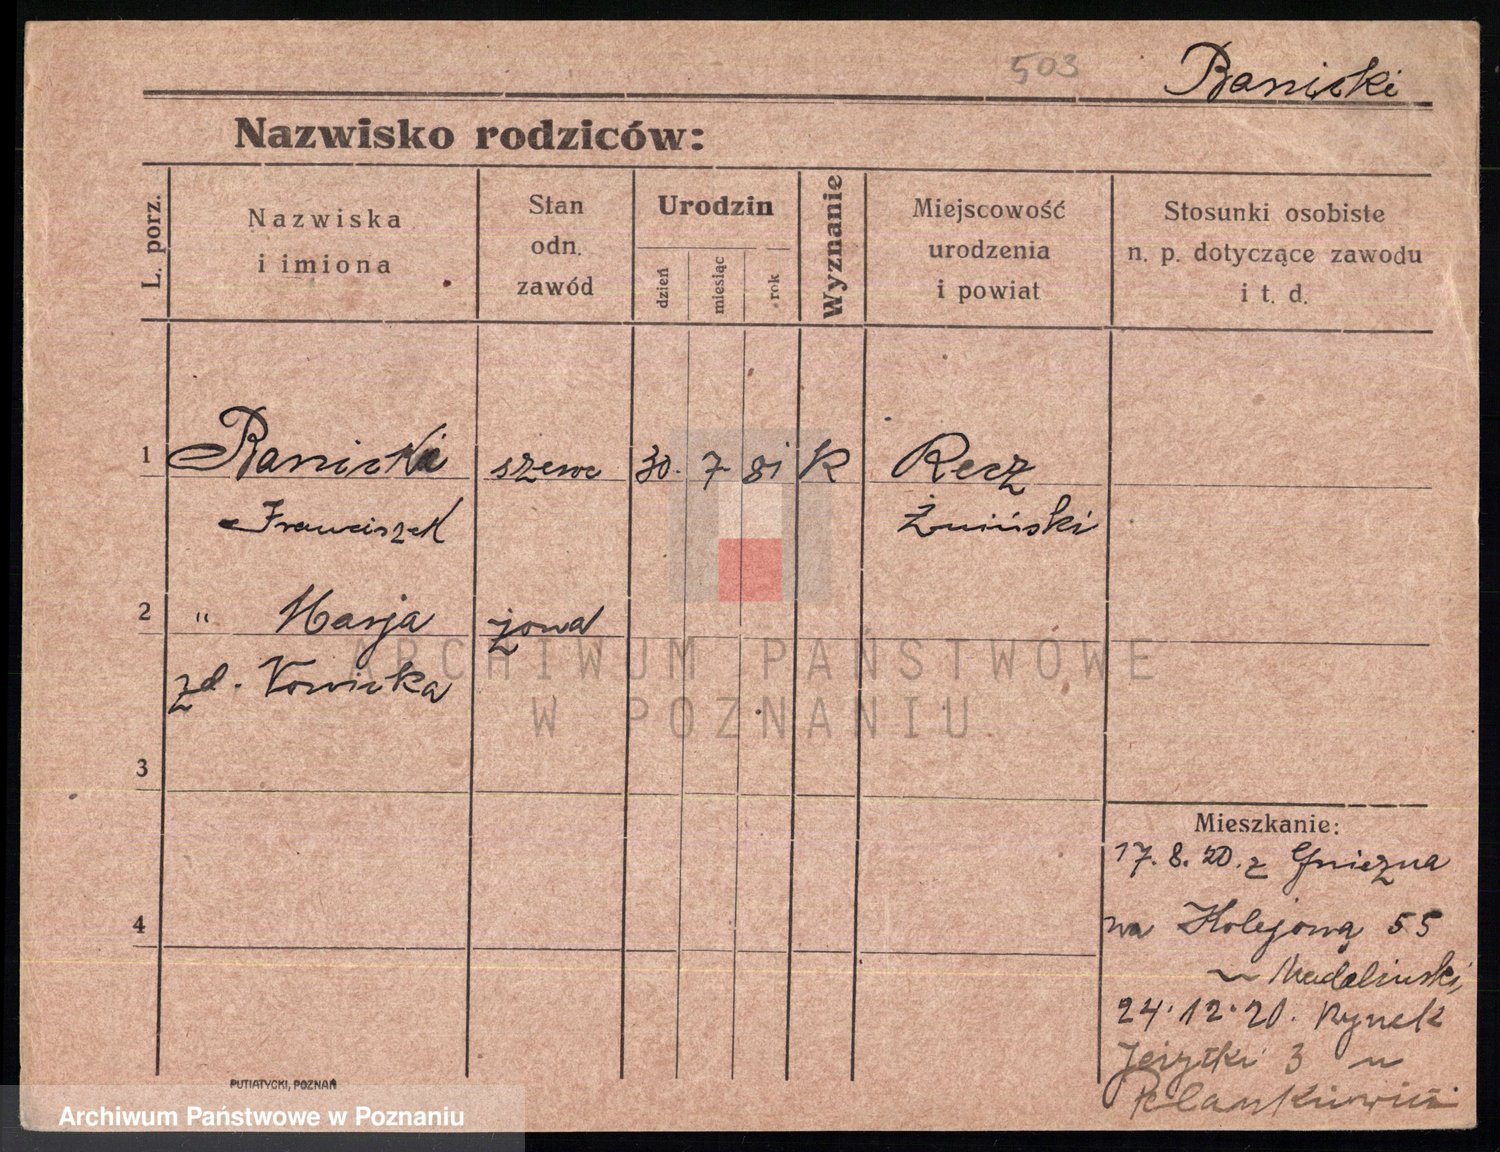 503
Raniski
Nazwisko rodziców:
L. porz.
Nazwiska
i imiona
Stan
odn.
zawód
Urodzin
dzień
miesiąc
rok
Wyznanie
Miejscowość
urodzenia
i powiat
Stosunki osobiste
n. p. dotyczące zawodu
i t. d.
1
szewc 30. 7 81 K
Franciszek Żniński
2 " Marja żona
zd.
3
4
Mieszkanie:
17. 8. 20. z Gniezna
na Kolejową 55
u Madalinski,
24. 12. 20. Rynek
3 u
PUTIATYCKI, POZNAŃ
ARCHIWUM PAŃSTWOWE
W POZNANIU
Archiwum Państwowe w Poznaniu